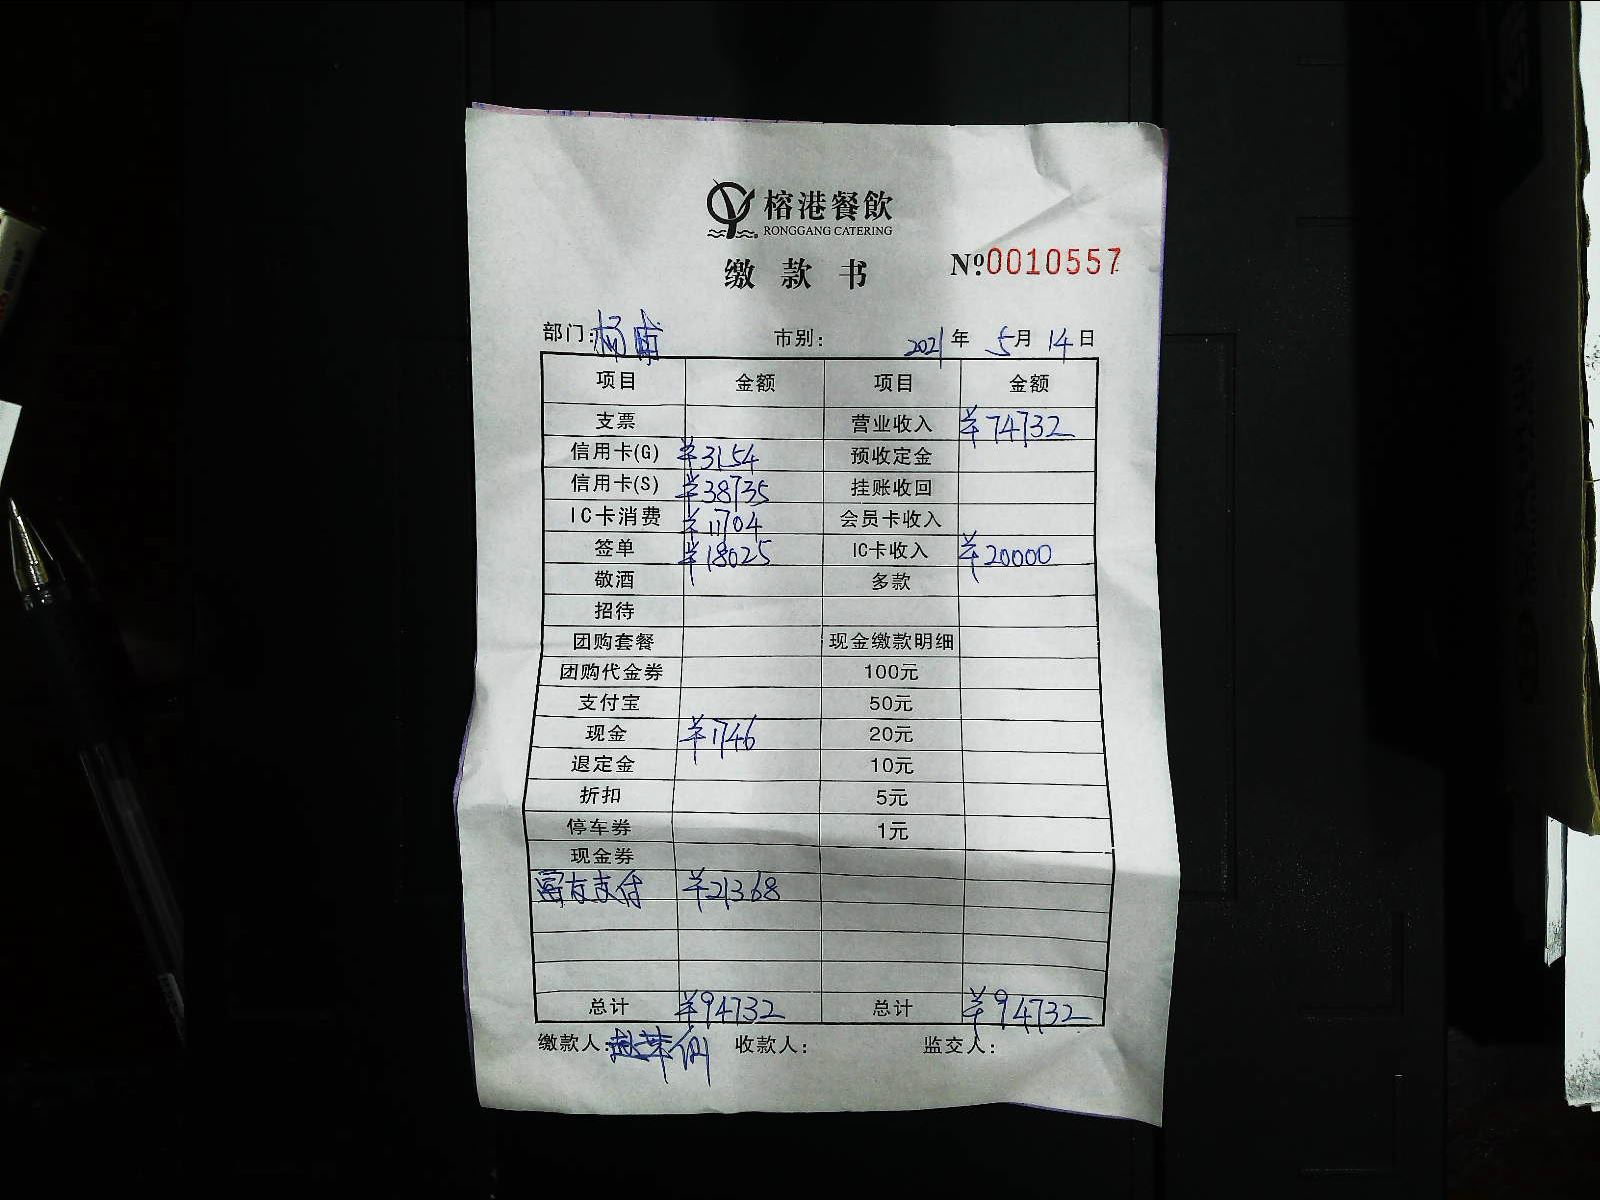 榕港餐飲
RONGGANG CATERING
缴款书 Nº0010557
部门: 杨浦 市别: 2021年5月14日
项目 金额 项目 金额
支票 营业收入 ¥74732
信用卡(G) ¥3154 预收定金
信用卡(S) ¥38735 挂账收回
IC卡消费 ¥11704 会员卡收入
签单 ¥18025 IC卡收入 ¥20000
敬酒 多款
招待
团购套餐 现金缴款明细
团购代金券 100元
支付宝 50元
现金 ¥1746 20元
退定金 10元
折扣 5元
停车券 1元
现金券
富友支付 ¥21368
总计 ¥94732 总计 ¥94732
缴款人: 收款人: 监交人: